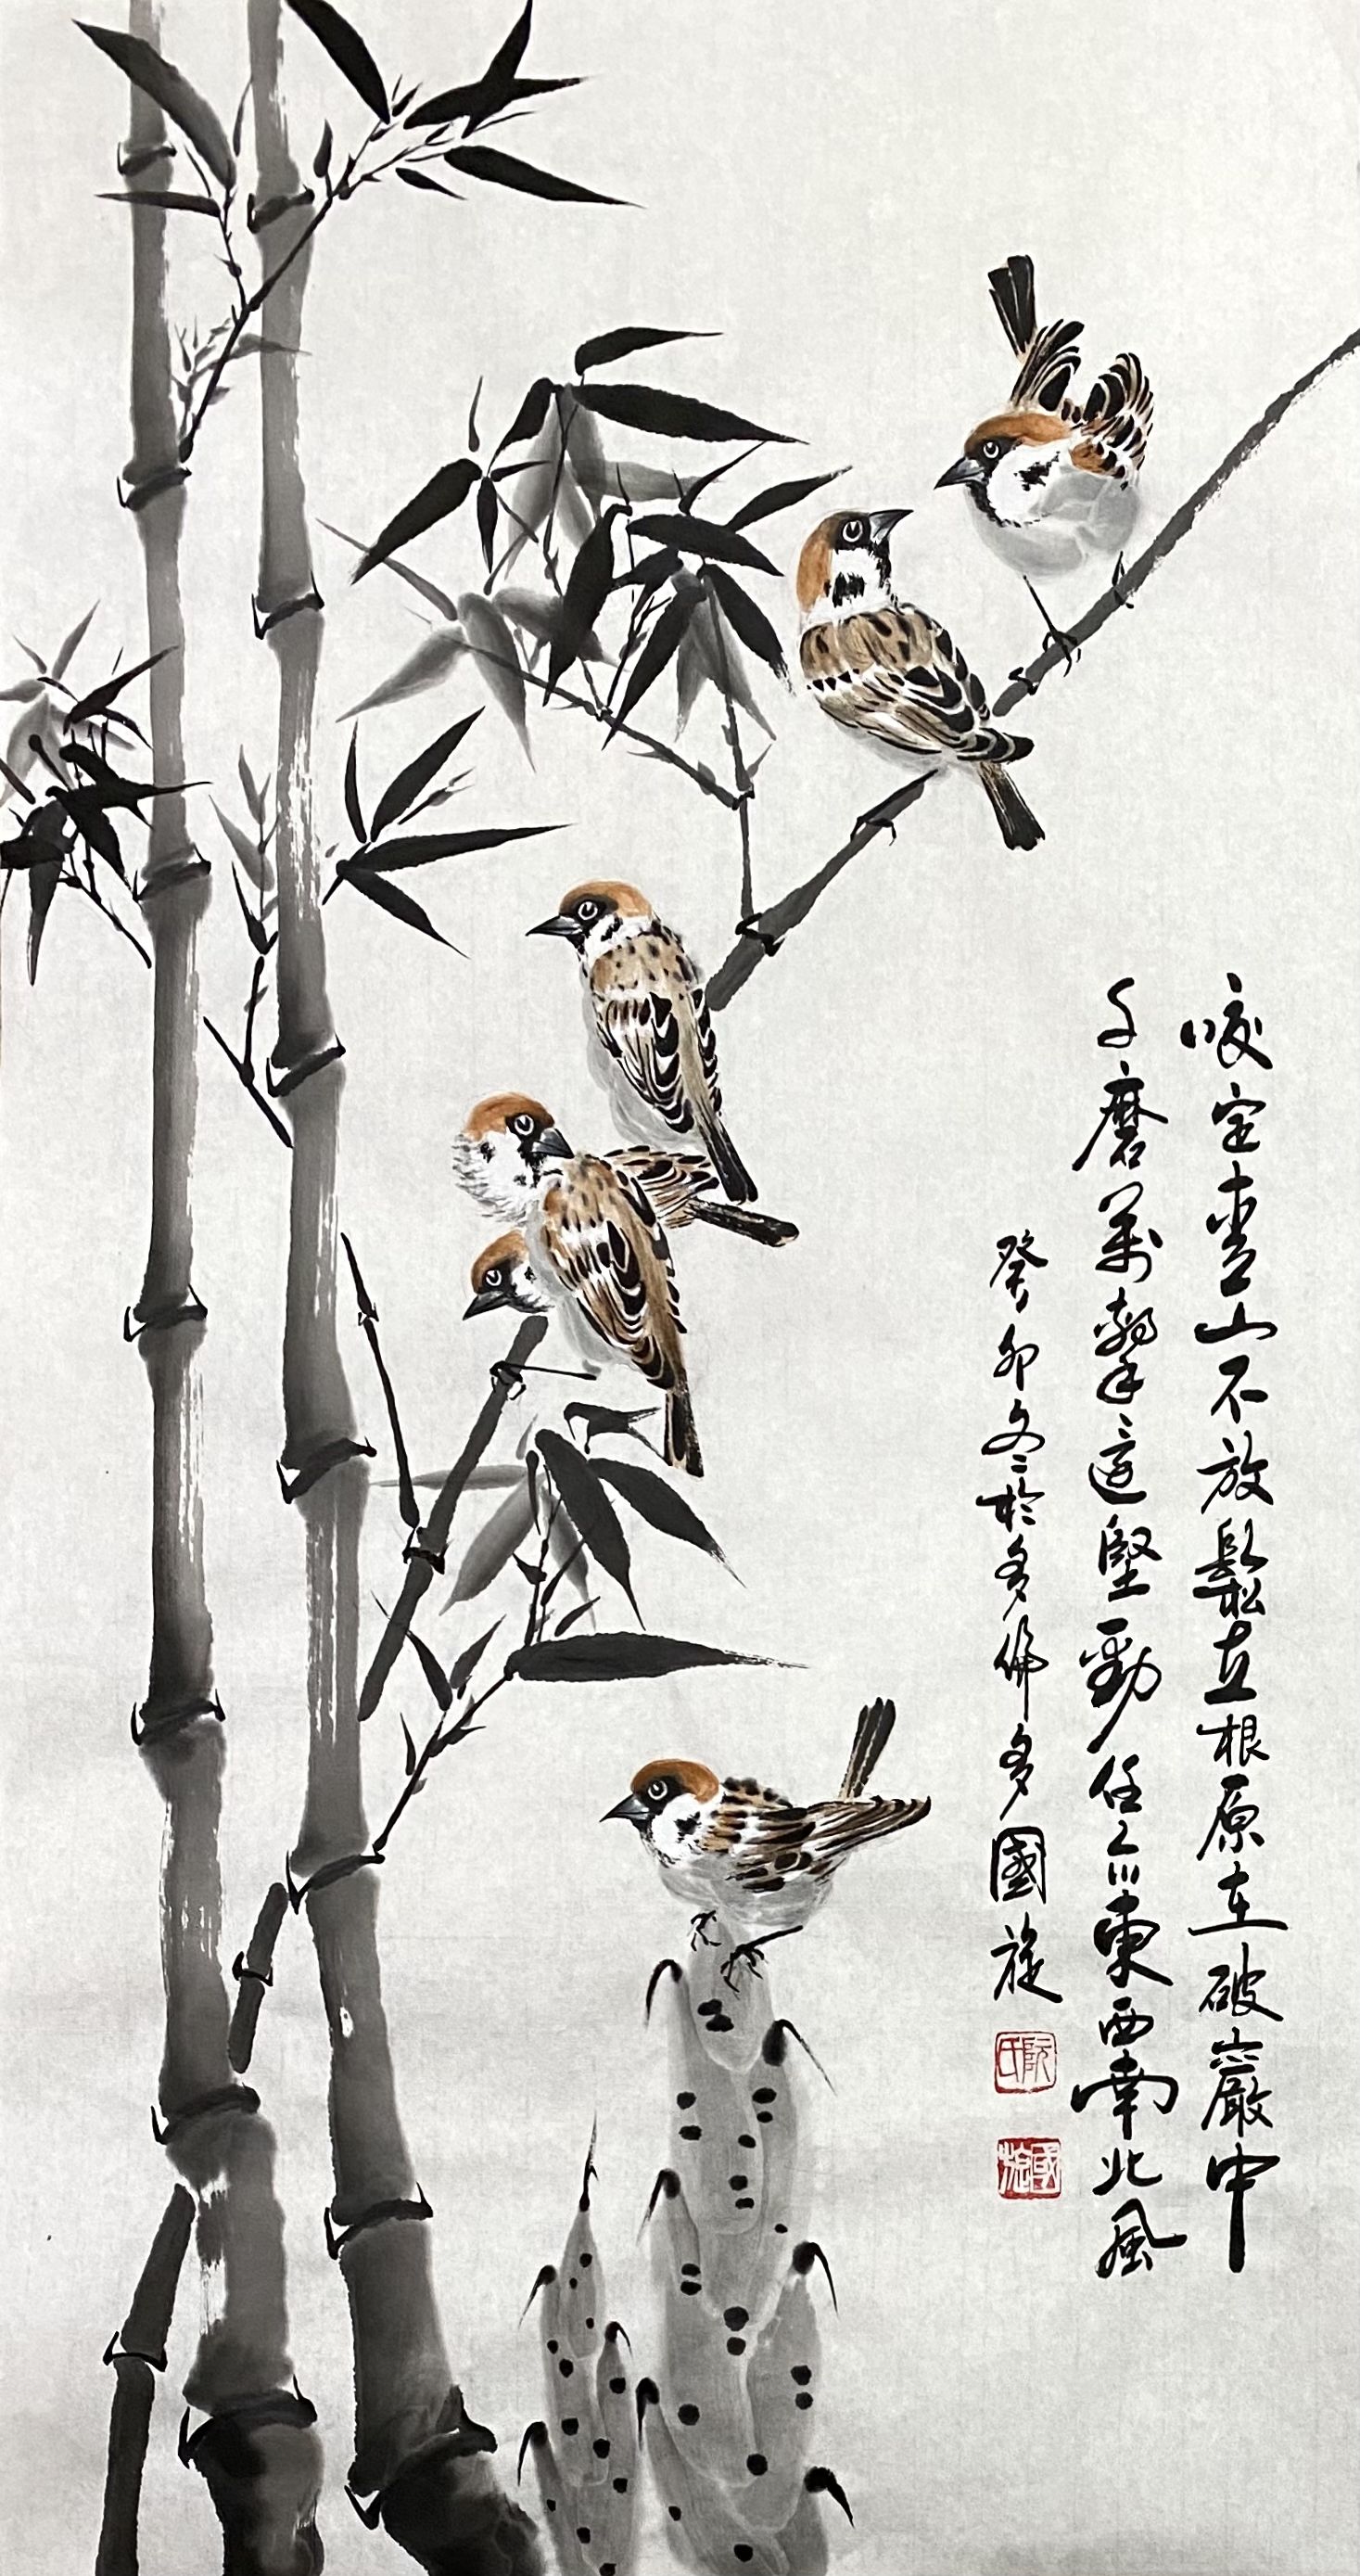 咬定青山不放鬆立根原在破巖中
千磨萬擊還堅勁任尔東西南北風
癸卯冬於多倫多國旋
阮氏
國旋